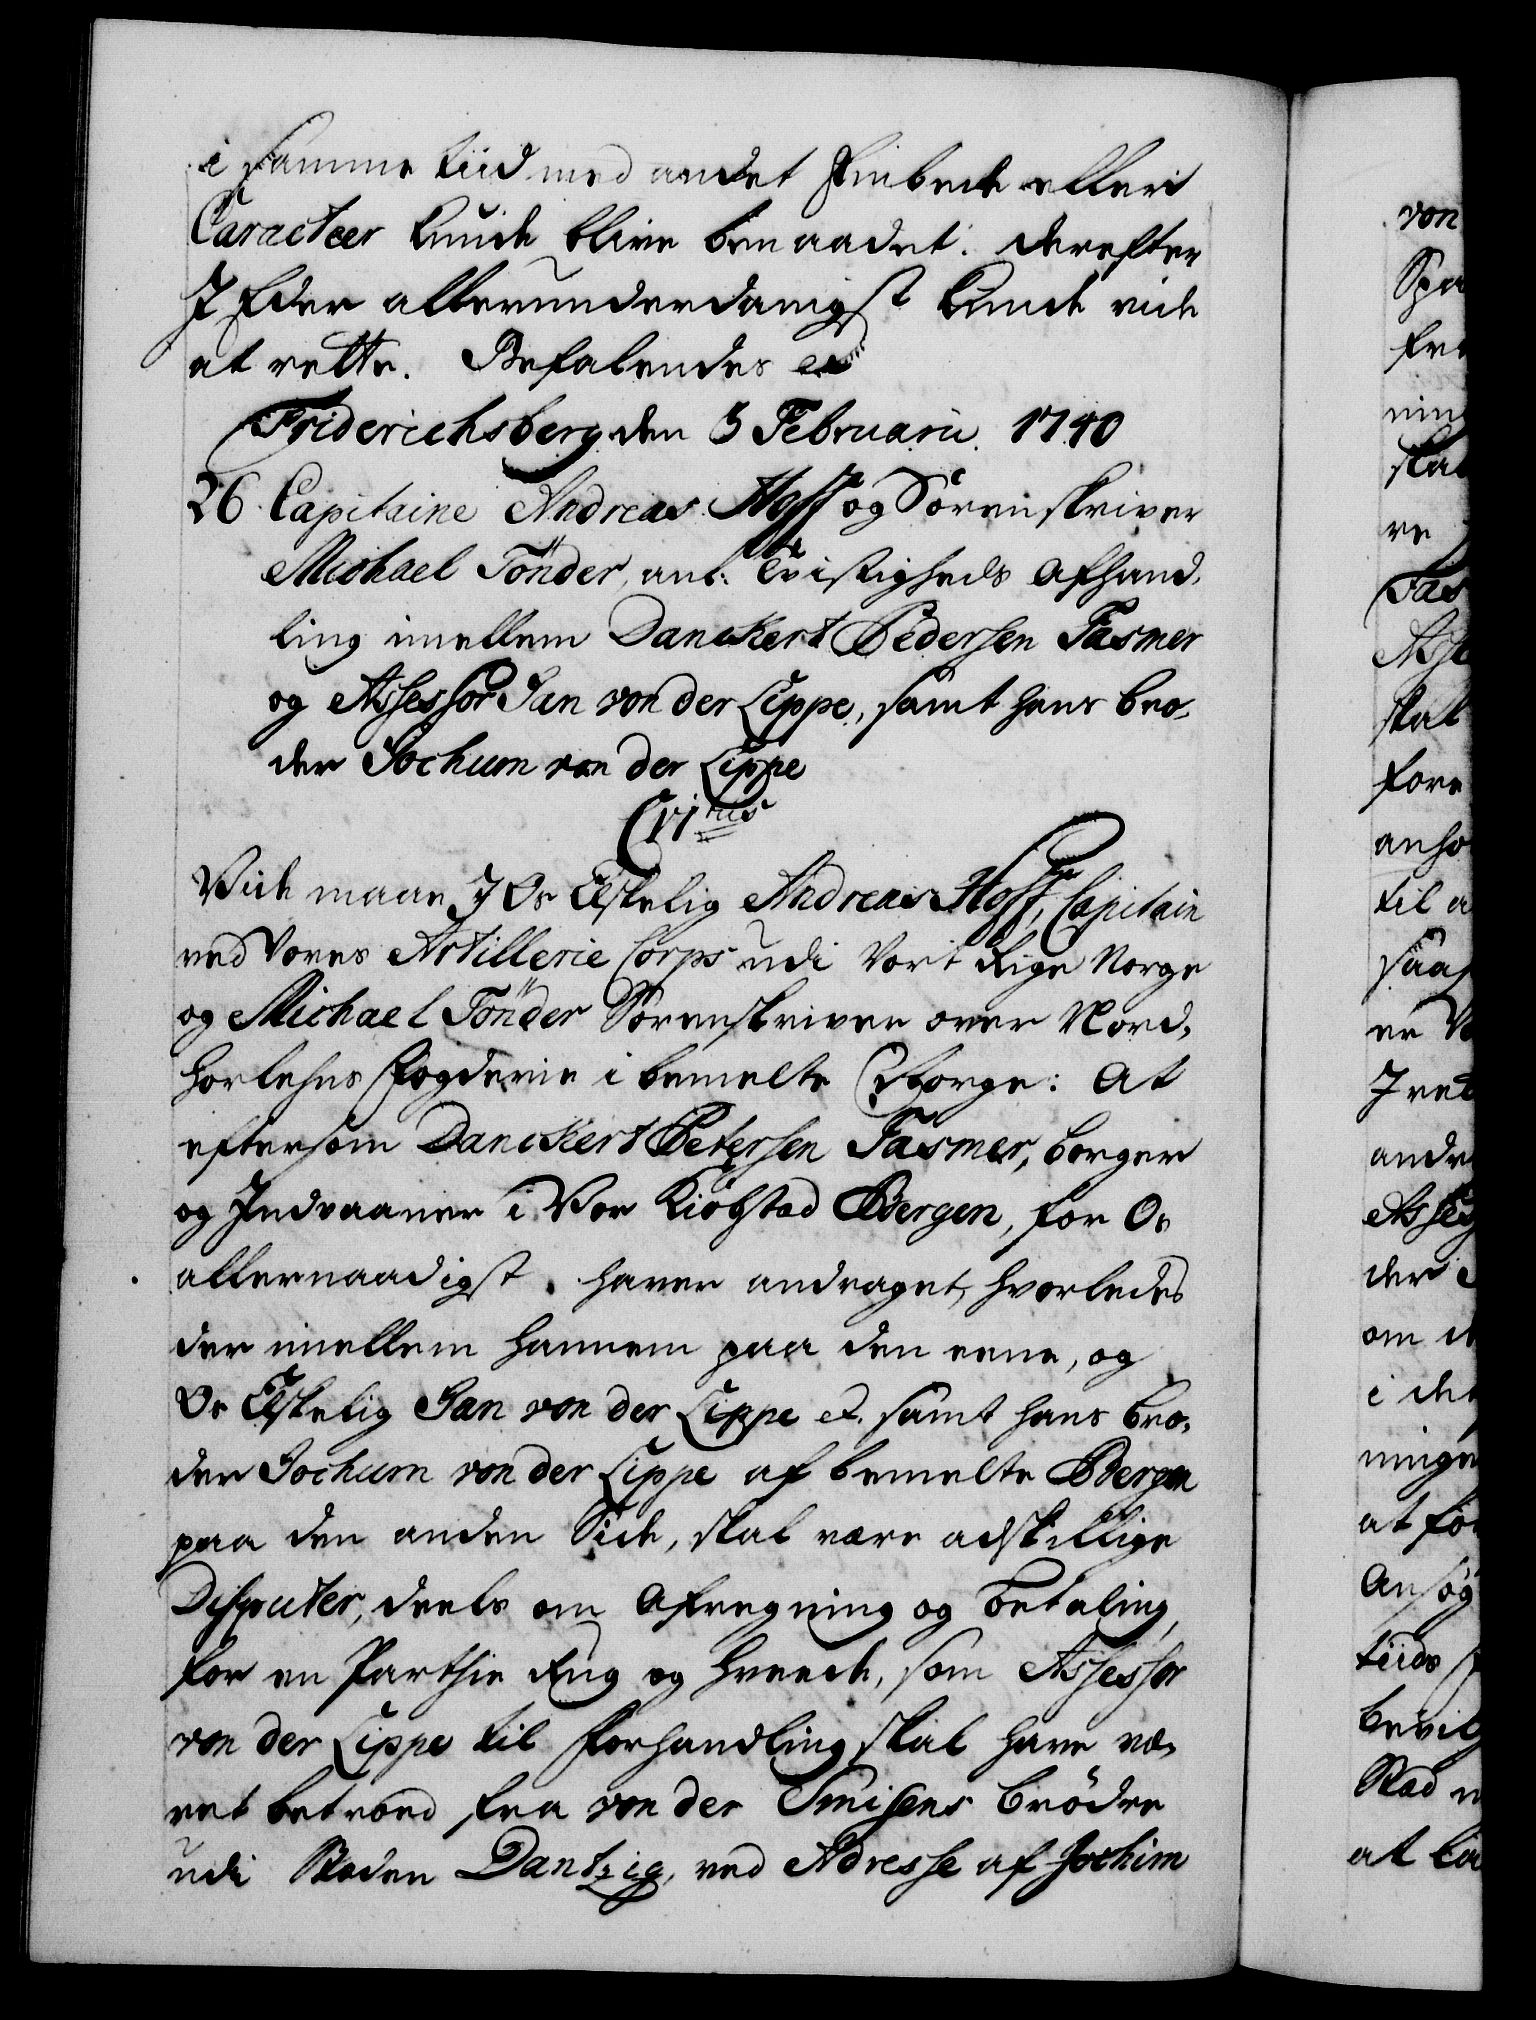 i samme tiid med andet Embede eller
Caracteer kunde blive benaadet. derefter
I Eder allerunderdanigst kunde vide
at rette. Befalendes etc
Friderichsberg den 5 Februarii 1740
26. Capitaine Andreas Hoff og Sørenskriver
Michael Tönder, anl: Tvistigheds Afhand,
ling imellem Danckert Pedersen Fasmer
og Assessor Jan von der Lippe, samt hans bro,
der Jochum von der Lippe
Cvitus
Viide maae I Os Elskelig Andreas Hoff, Capitain
ved Vores Artillerie Corps udi Vort Rige Norge
og Michael Tönder Sørenskriver over Nord,
horlehns Fogderie i bemelte Norge: At
eftersom Danckert Petersen Fasmer, borger
og Indvaaner i Vor Kiøbstad Bergen, for Os
allernaadigst. haver andraget, hvorledes
der imellem hannem paa den eene, og
Os Elskelig Jan von der Lippe etc. samt hans bro,
der Jochum von der Lippe af bemelte Bergen
paa den anden Side, skal være adskillige
Disputer, deels om Afregning og betaling
for en Parthie Rug og hveede, som Assessor
von der Lippe til forhandling skal have væ,
ret betroed fra von der Smisens brödre
udi Staden Dantzig, ved Adresse af Jochim
von
Spa
fra
ning
skal
re
Fas
Asse
skal
fore
anho
til a
saa
er V
I ved
andr
Assess
der
om
i det
ninger
at for
Ansøg
tiids
bevilg
Stad
at la